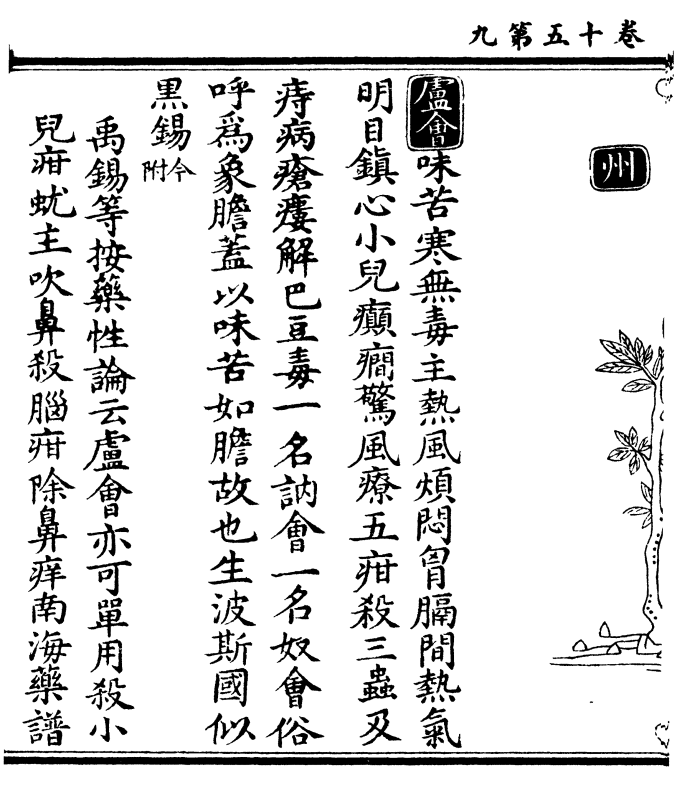 卷十五第九
州
盧會味苦寒無毒主熱風煩悶胷膈間熱氣
明目鎮心小兒癲癇驚風療五疳殺三蟲及
痔病瘡瘻解巴豆毒一名訥會一名奴會俗
呼爲象膽蓋以味苦如膽故也生波斯國似
黑錫今附
禹錫等按藥性論云盧會亦可單用殺小
兒疳蚘主吹鼻殺腦疳除鼻痒南海藥譜